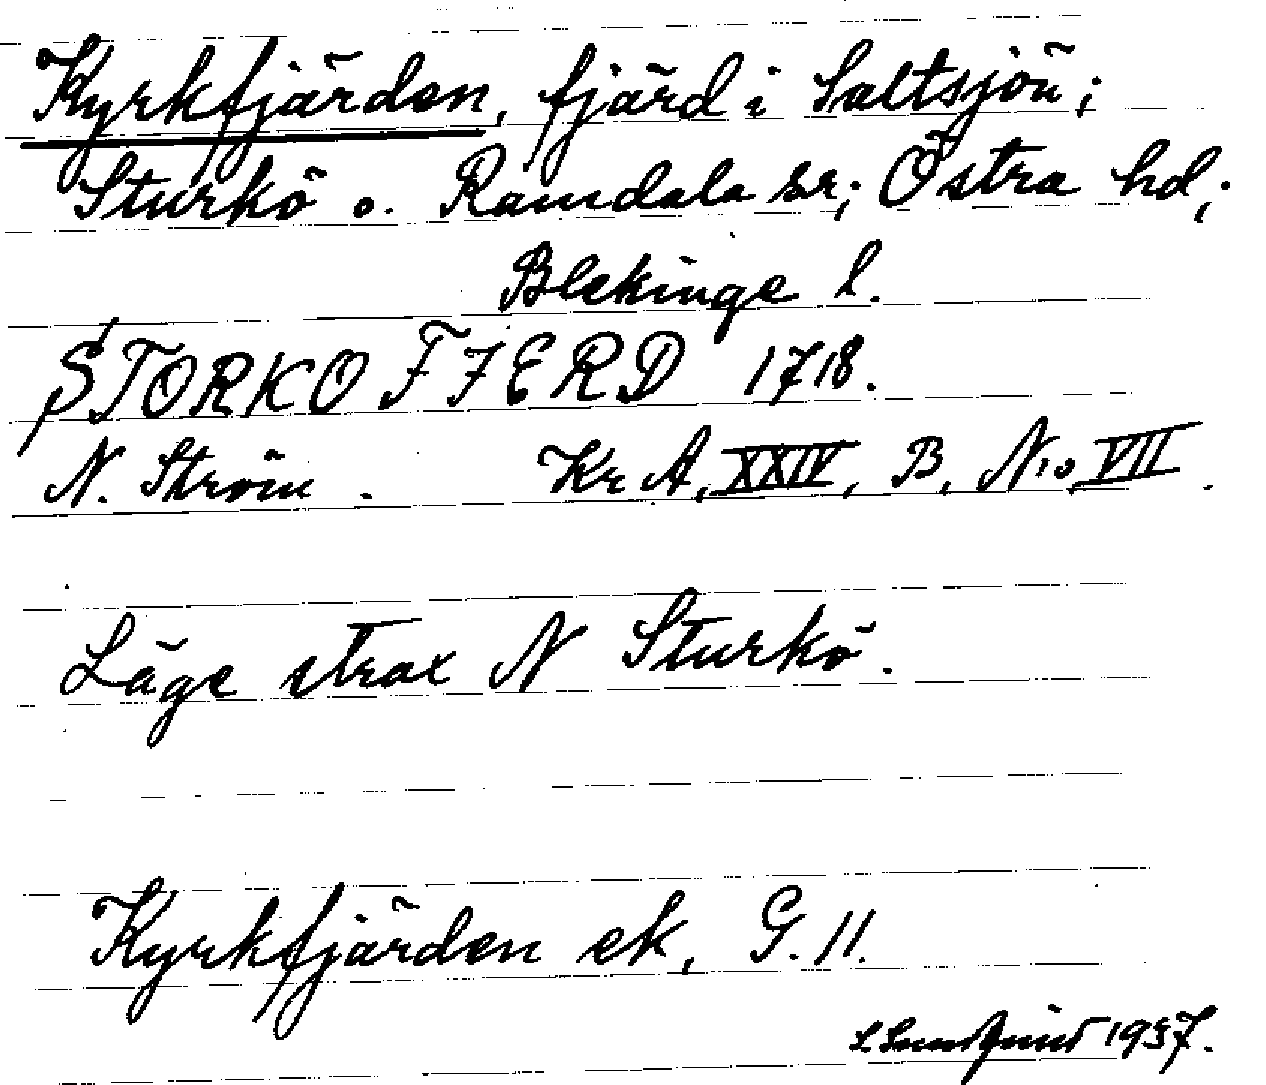 Kyrkfjärden, fjärd i Saltsjön;
Sturkö o. Ramdala sr; Östra hd;
Blekinge l.
STORKO FJERD 1718.
N. Ström. Kr A, XXIV, B, No VII.
Läge strax N Sturkö.
Kyrkfjärden ek, G. 11.
1937.